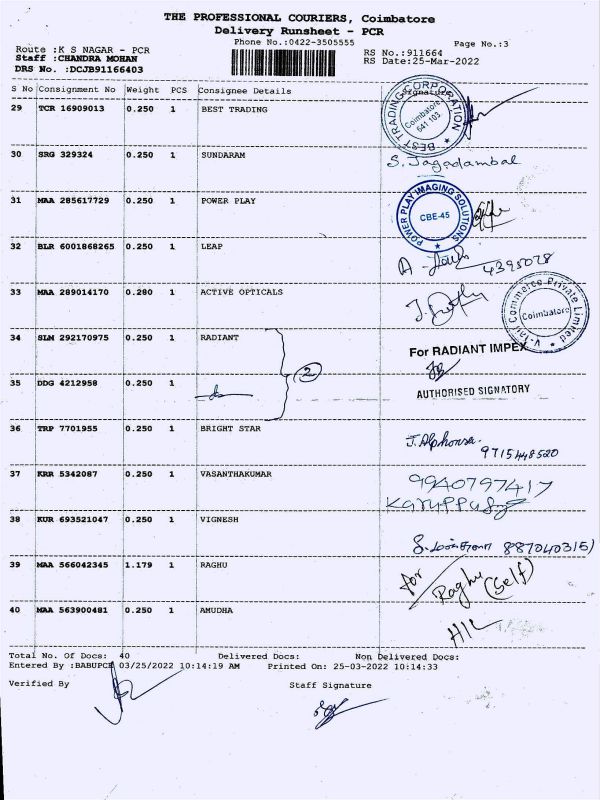 THE PROFESSIONAL COURIERS, Coimbatore
Delivery Runsheet - PCR
Phone No.:0422-3505555
Page No.:3
Route :K S NAGAR - PCR
RS No.:911664
Staff :CHANDRA MOHAN
RS Date:25-Mar-2022
DRS No. :DCJB91166403
S No Consignment No Weight PCS Consignee Details Signature
29 TCR 16909013 0.250 1 BEST TRADING
BEST TRADING CORPORATION
Coimbatore
641 103
30 SRG 329324 0.250 1 SUNDARAM S. Jagadambal
31 MAA 285617729 0.250 1 POWER PLAY
POWER PLAY IMAGING SOLUTIONS
CBE-45
32 BLR 6001868265 0.250 1 LEAP
4395028
33 MAA 289014170 0.280 1 ACTIVE OPTICALS
Commerce Private Limited
Coimbatore
34 SLM 292170975 0.250 1 RADIANT
2
For RADIANT IMPEX
35 DDG 4212958 0.250 1
AUTHORISED SIGNATORY
36 TRP 7701955 0.250 1 BRIGHT STAR J. Alphonsa.
9715448520
37 KRR 5342087 0.250 1 VASANTHAKUMAR 9940797417
38 KUR 693521047 0.250 1 VIGNESH
8870403151
39 MAA 566042345 1.179 1 RAGHU for
Raghu (Self)
40 MAA 563900481 0.250 1 AMUDHA
H/L
Total No. Of Docs: 40 Delivered Docs: Non Delivered Docs:
Entered By :BABUPCR 03/25/2022 10:14:19 AM Printed On: 25-03-2022 10:14:33
Verified By Staff Signature